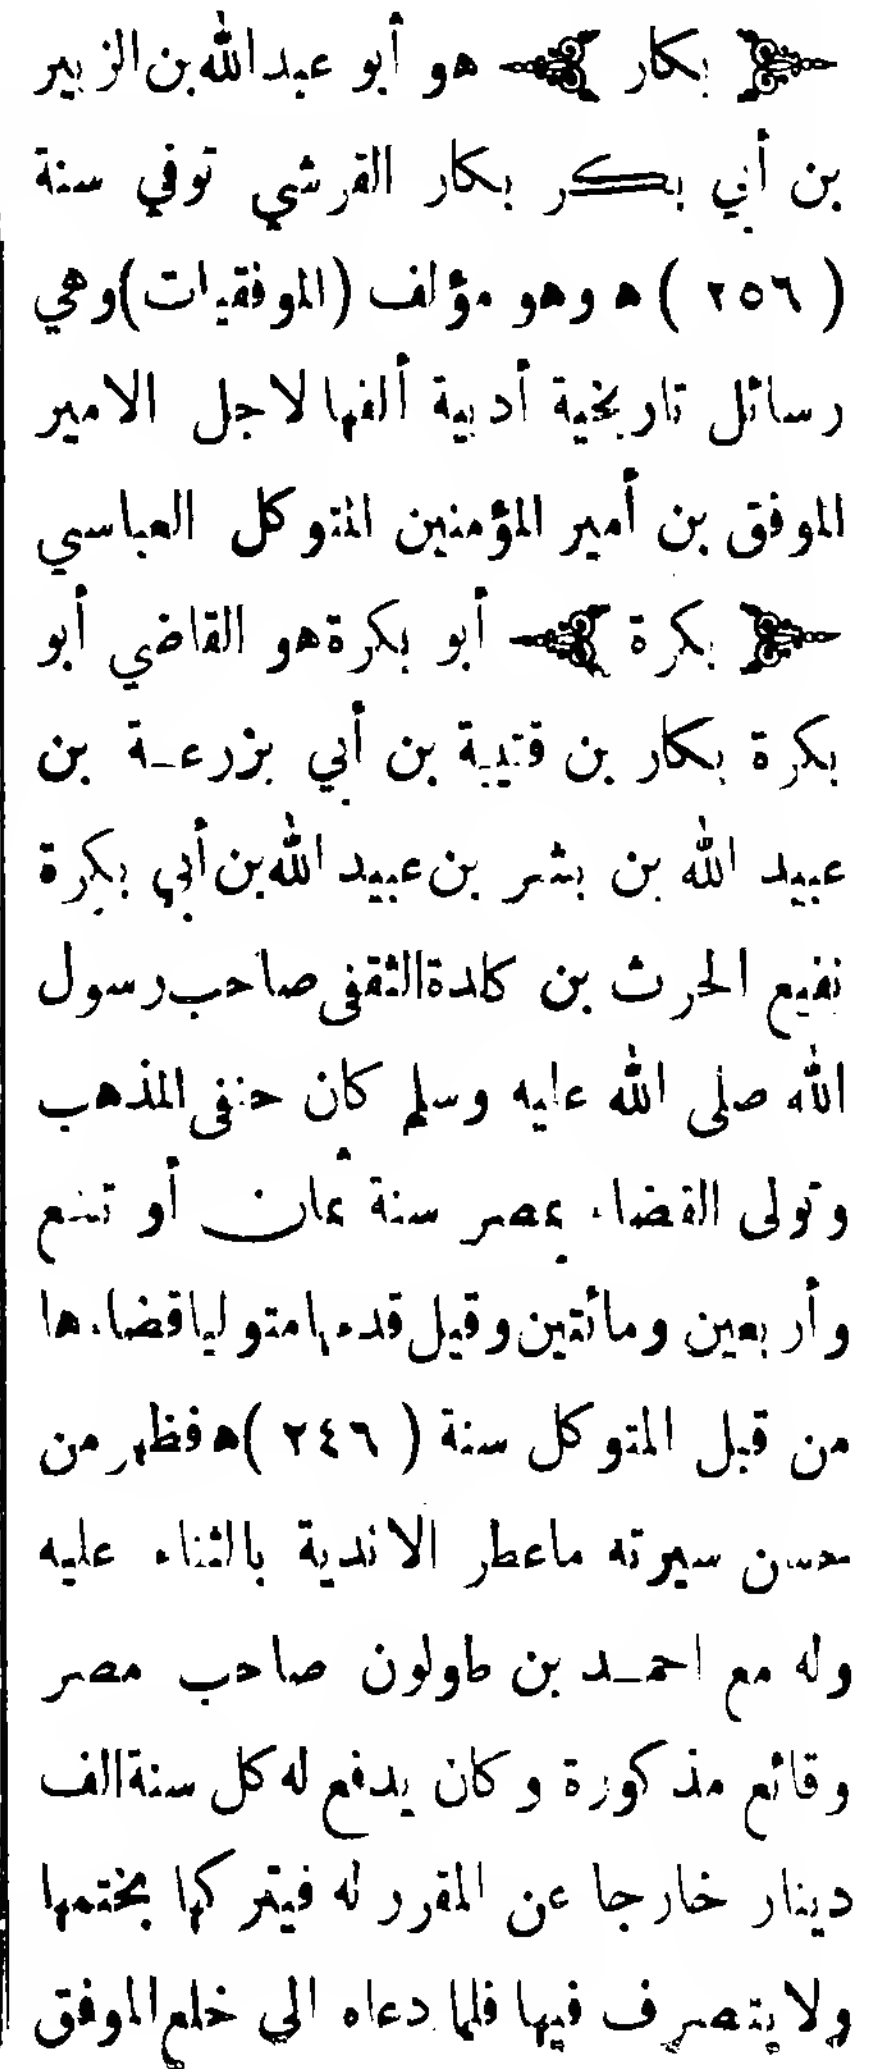 ﴿ بكار ﴾ هو أبو عبد الله بن الزبير
بن أبي بكر بكار القرشي توفي سنة
( ٢٥٦ ) ه وهو مؤلف (الموفقيات) وهي
رسائل تاريخية أدبية ألفها لاجل الامير
الموفق بن أمير المؤمنين المتوكل العباسي
﴿ بكرة ﴾ أبو بكرة هو القاضي أبو
بكرة بكار بن قتيبة بن أبي بزرعة بن
عبيد الله بن بشر بن عبيد الله بن أبي بكرة
نفيع الحرث بن كلدة الثقفى صاحب رسول
الله صلى الله عليه وسلم كان حنفى المذهب
وتولى القضاء بمصر سنة ثمان أو تسع
وأربعين ومائتين وقيل قدمها متوليا قضاءها
من قبل المتوكل سنة ( ٢٤٦ )ه فظهر من
حسن سيرته ماعطر الاندية بالثناء عليه
وله مع احمد بن طولون صاحب مصر
وقائع مذكورة وكان يدفع له كل سنة الف
دينار خارجا عن المقرر له فيتركها بختمها
ولا يتصرف فيها فلما دعاه الي خلع الموفق